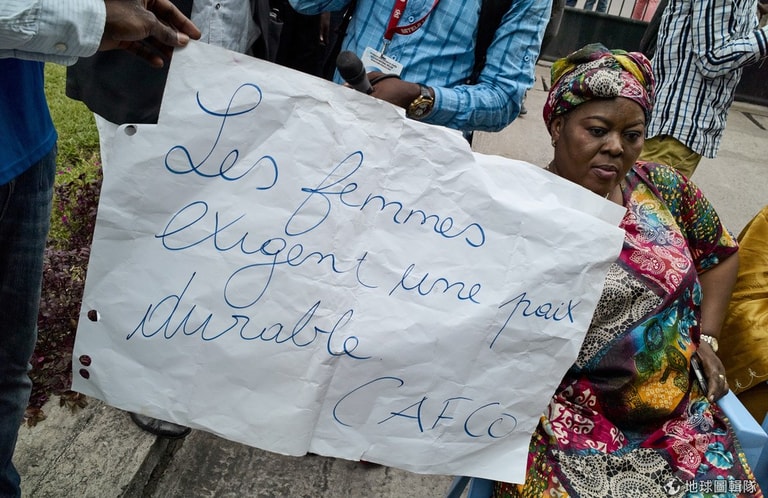 Les femmes
exigent une paix
durable
CAFCO
地球圖輯隊